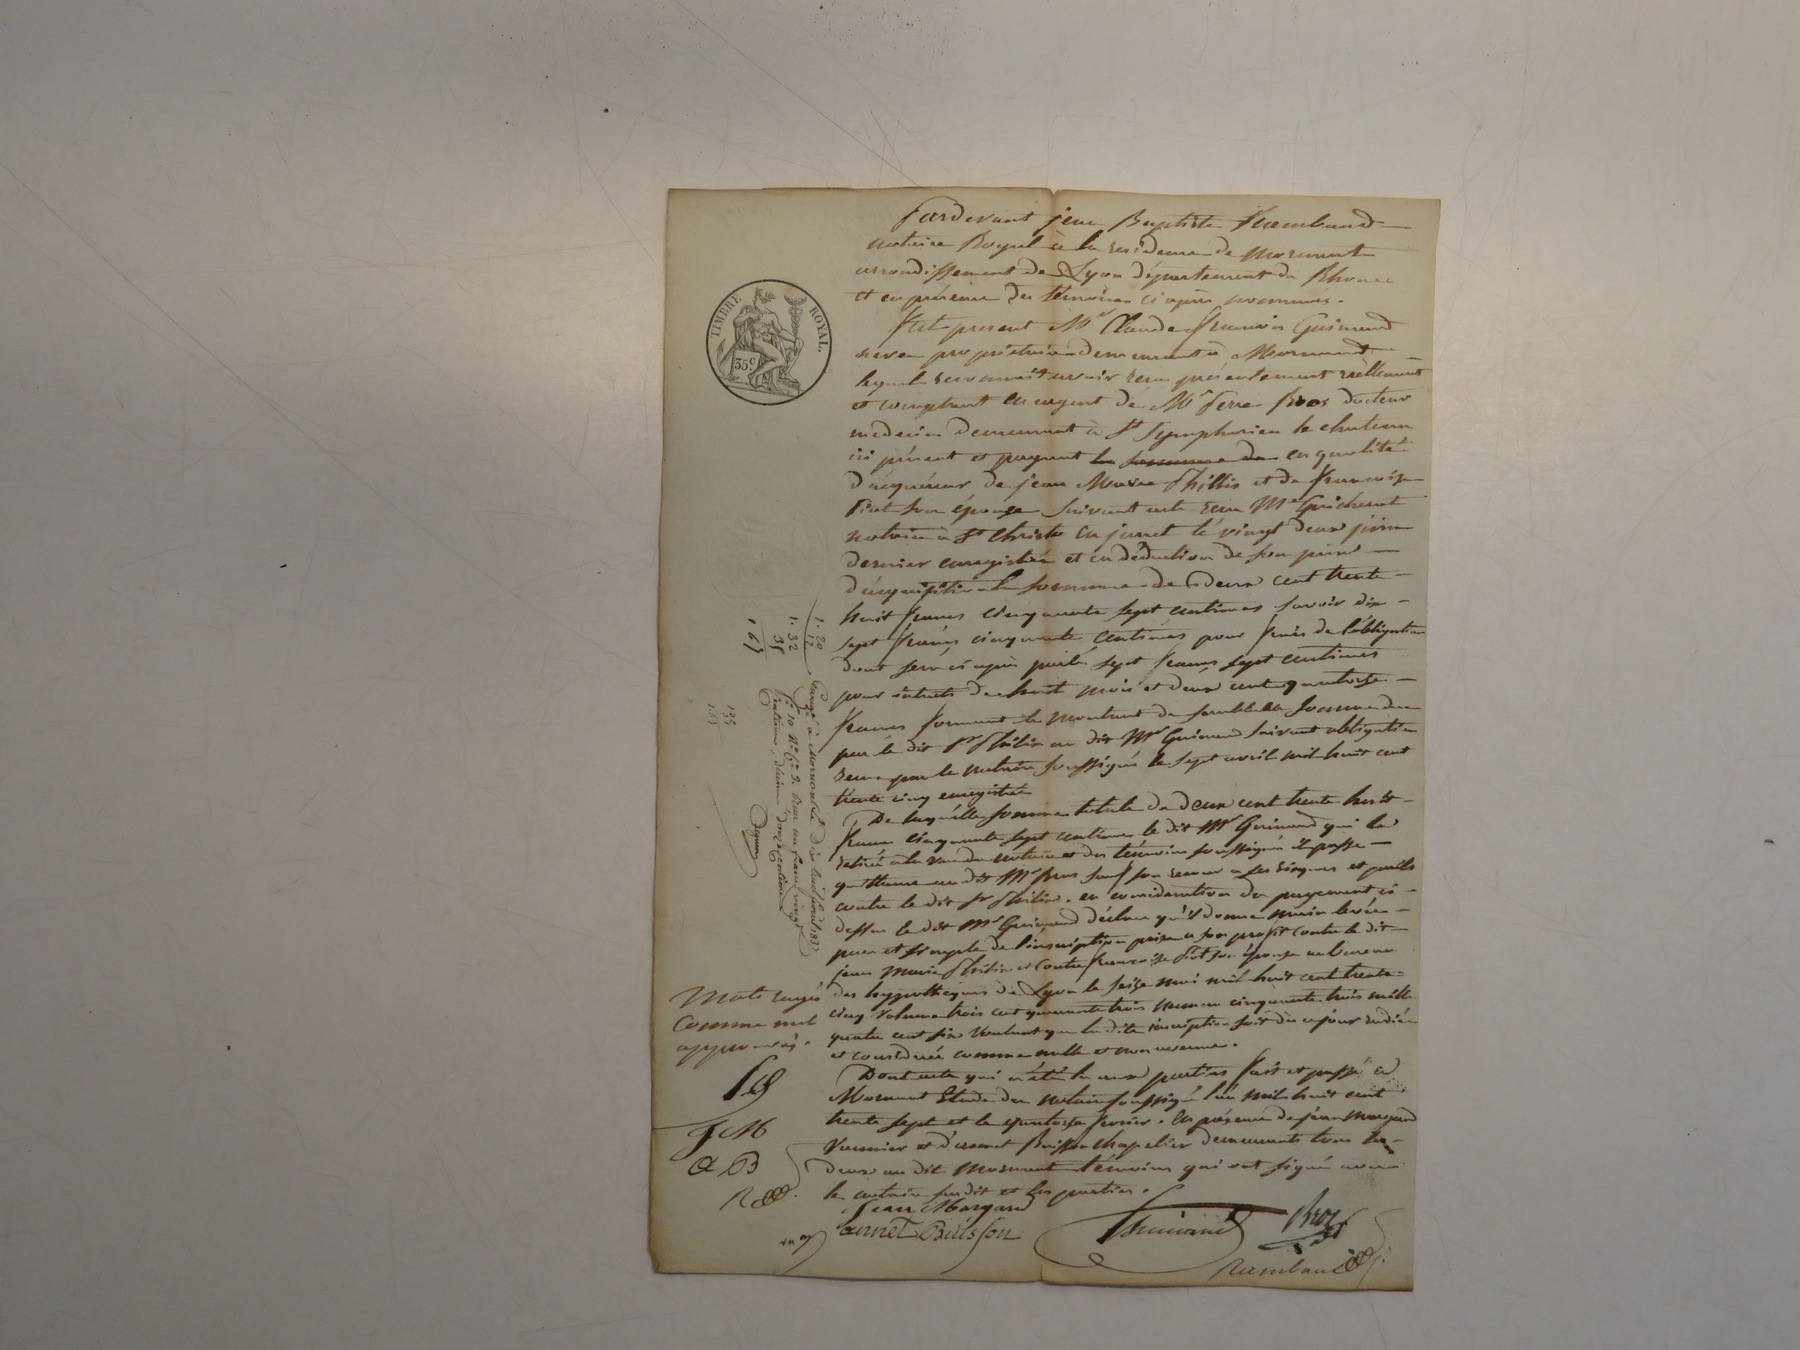 Pardevant jean Baptiste Rambaud
notaire Royal à la residence de Mornant
arrondissement de Lyon département du Rhone
et en présence des témoins ci après nommés.
Fut present Mr Claude François Guinand
propriétaire demeurant à Mornant
lequel reconnait avoir reçu présentement réellement
et comptant en argent de Mr Pierre Bros docteur
medecin demeurant à St Symphorien le chateau
ici présent et payant la somme de en qualité
d'acquéreur de jean Marie Philis et de françoise
Piot son épouse suivant acte reçu Me Guichenot
notaire à St Christo en jarret le vingt deux juin
dernier enregistré et en déduction de son prix
d'acquisition la somme de deux cent trente
huit francs cinquante sept centimes savoir dix
sept francs cinquante centimes pour frais de l'obligation
dont sera ci après parlé sept francs sept centimes
pour intérêts de huit mois et deux cent quatorze
francs formant le montant de semblable somme due
par le dit Sr Philis au dit Mr Guinand suivant obligation
reçue par le notaire soussigné le sept avril mil huit cent
trente cinq enregistrée
De laquelle somme totale de deux cent trente huit
francs cinquante sept centimes le dit Mr Guinand qui la
retirée à la vue du notaire et des témoins soussignés passe
quittance au dit Mr Bros sauf son recour
contre le dit Sr Philis. en considération du payement ci
dessus le dit Mr Guinand déclare qu'il donne main levée
pure et simple de l'inscription prise à son profit contre le dit
jean Marie Philis et contre françoise Piot son épouse au bureau
des hypothèques de Lyon le seize mai mil huit cent trente
cinq volume trois cent quarante trois numero cinquante trois mille
quatre cent six voulant que la dite inscription soit de ce jour radiée
et considérée comme nulle et non avenue.
Dont acte qui a été lu aux parties fait et passé à
Mornant Etude du notaire soussigné l'an mil huit cent
trente sept et le quatorze fevrier. En présence de jean Margand
et d'annet Buisson chapelier demeurants tous les
deux au dit Mornant témoins qui ont signé avec
le notaire susdit et les parties.
Jean Margand
annet Buisson
Guinand
Bros
Rambaud
TIMBRE ROYAL.
35c
1. 20
12
1. 32
35
1 67
Enregé à Mornant le dix huit fevrier 1837
fo 10 Ro Co 2. Reçu un franc vingt
centimes, dixième douze centimes
Mots rayés
comme nul
approuvés.
JM
A B